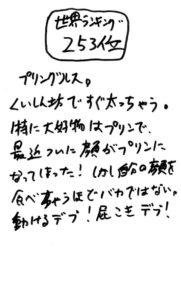 世界ランキング
253位
プリングルス。
くいしん坊ですぐ太っちゃう。
特に大好物はプリンで、
最近ついに顔がプリンに
なってしまった！しかし自分の顔を
食べちゃうほどバカではない。
動けるデブ！屁こきデブ！